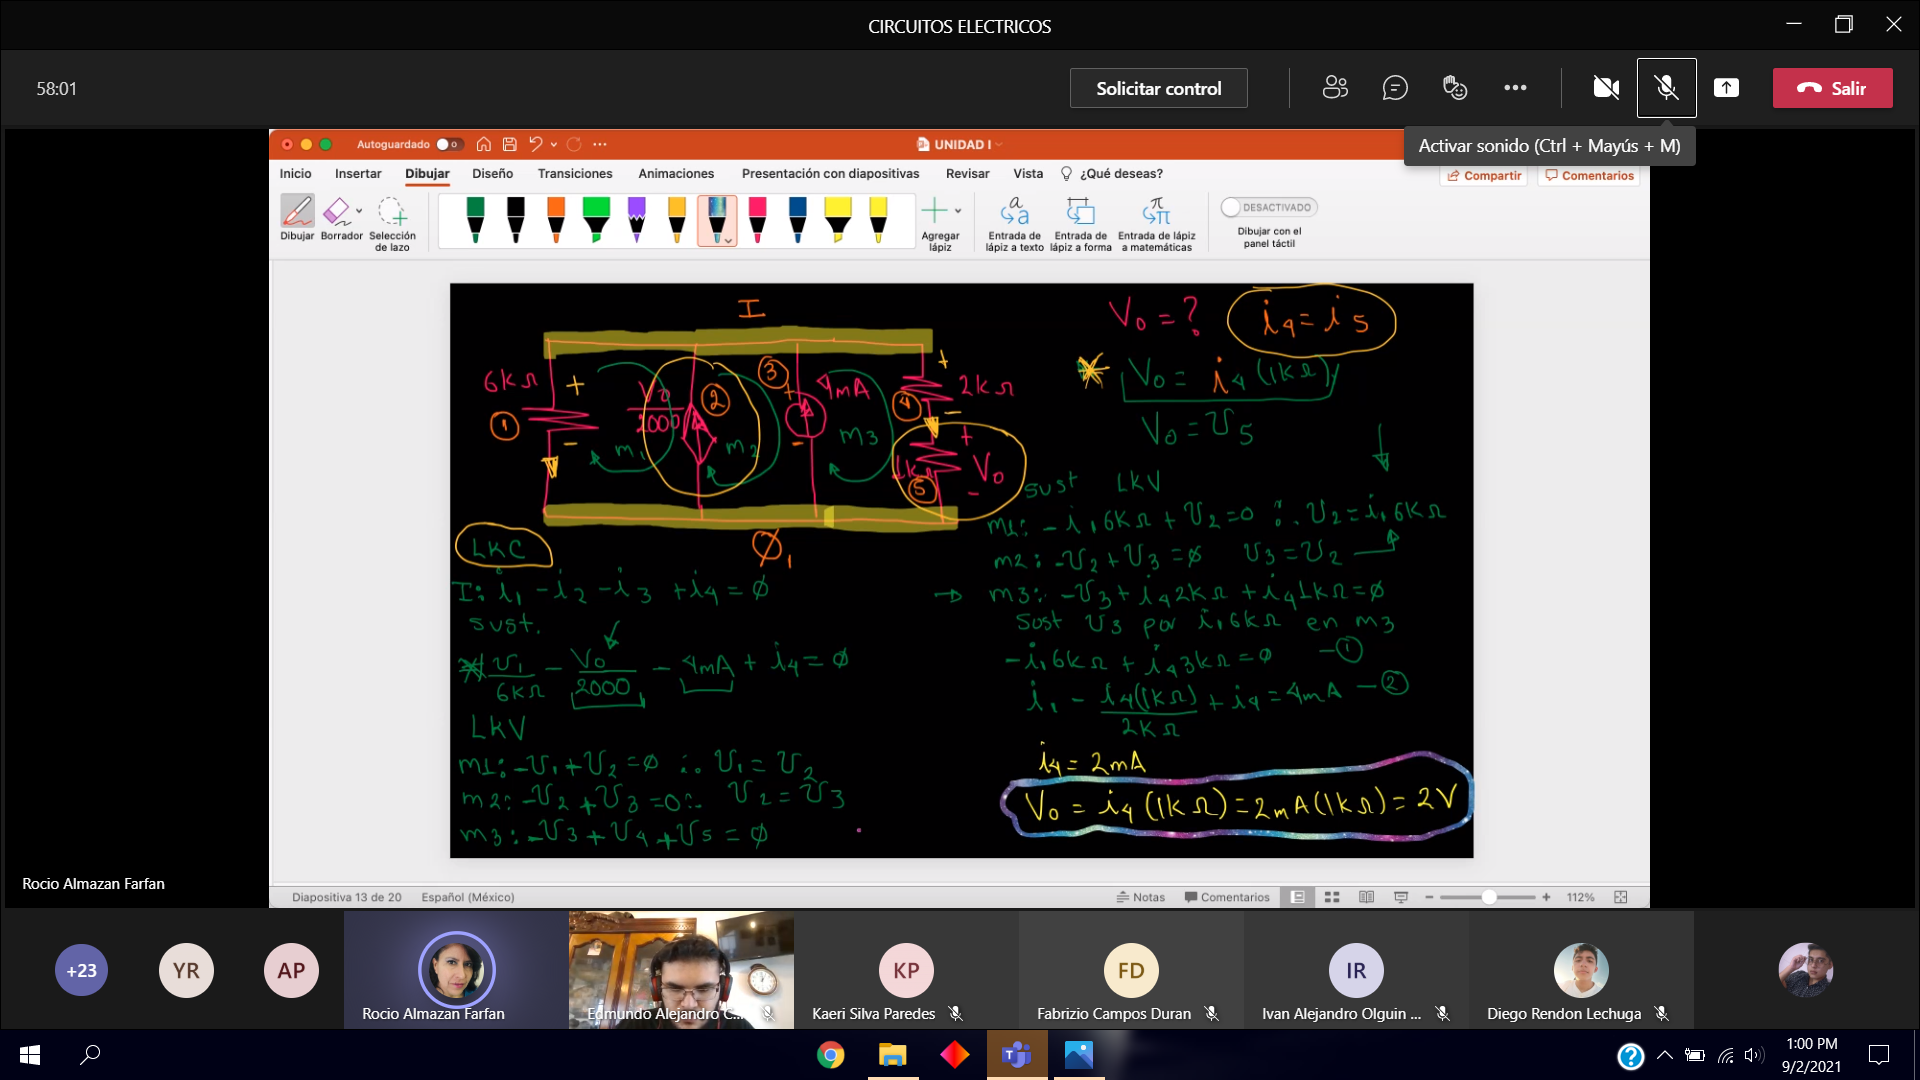 CIRCUITOS ELECTRICOS
58:01
Solicitar control
Salir
Activar sonido (Ctrl + Mayús + M)
Autoguardado
UNIDAD I
Inicio Insertar Dibujar Diseño Transiciones Animaciones Presentación con diapositivas Revisar Vista ¿Qué deseas?
Compartir Comentarios
Dibujar Borrador Selección de lazo
Agregar lápiz
Entrada de lápiz a texto
Entrada de lápiz a forma
Entrada de lápiz a matemáticas
DESACTIVADO
Dibujar con el panel táctil
I
6kΩ + 1 −
V0/2000 2
3 + 4mA −
+ 2kΩ 4 −
+ 1kΩ V0 5 −
m1 m2 m3
Ø1
V0 = ? i4 = i5
V0 = i4 (1kΩ)
V0 = V5
LKC
I: i1 − i2 − i3 + i4 = Ø
sust.
V1/6kΩ − V0/2000 − 4mA + i4 = Ø
LKV
m1: −V1 + V2 = Ø ∴ V1 = V2
m2: −V2 + V3 = 0 ∴ V2 = V3
m3: −V3 + V4 + V5 = Ø
sust LKV
m1: − i1 6kΩ + V2 = 0 ∴ V2 = i1 6kΩ
m2: −V2 + V3 = Ø V3 = V2
→ m3: −V3 + i4 2kΩ + i4 1kΩ = Ø
Sust V3 por i1 6kΩ en m3
−i1 6kΩ + i4 3kΩ = Ø −①
i1 − i4(1kΩ)/2kΩ + i4 = 4mA −②
i4 = 2mA
V0 = i4 (1kΩ) = 2mA(1kΩ) = 2V
Rocio Almazan Farfan
Diapositiva 13 de 20 Español (México)
Notas Comentarios 112%
+23
YR
AP
Rocio Almazan Farfan
Edmundo Alejandro C...
KP
Kaeri Silva Paredes
FD
Fabrizio Campos Duran
IR
Ivan Alejandro Olguin ...
Diego Rendon Lechuga
1:00 PM
9/2/2021